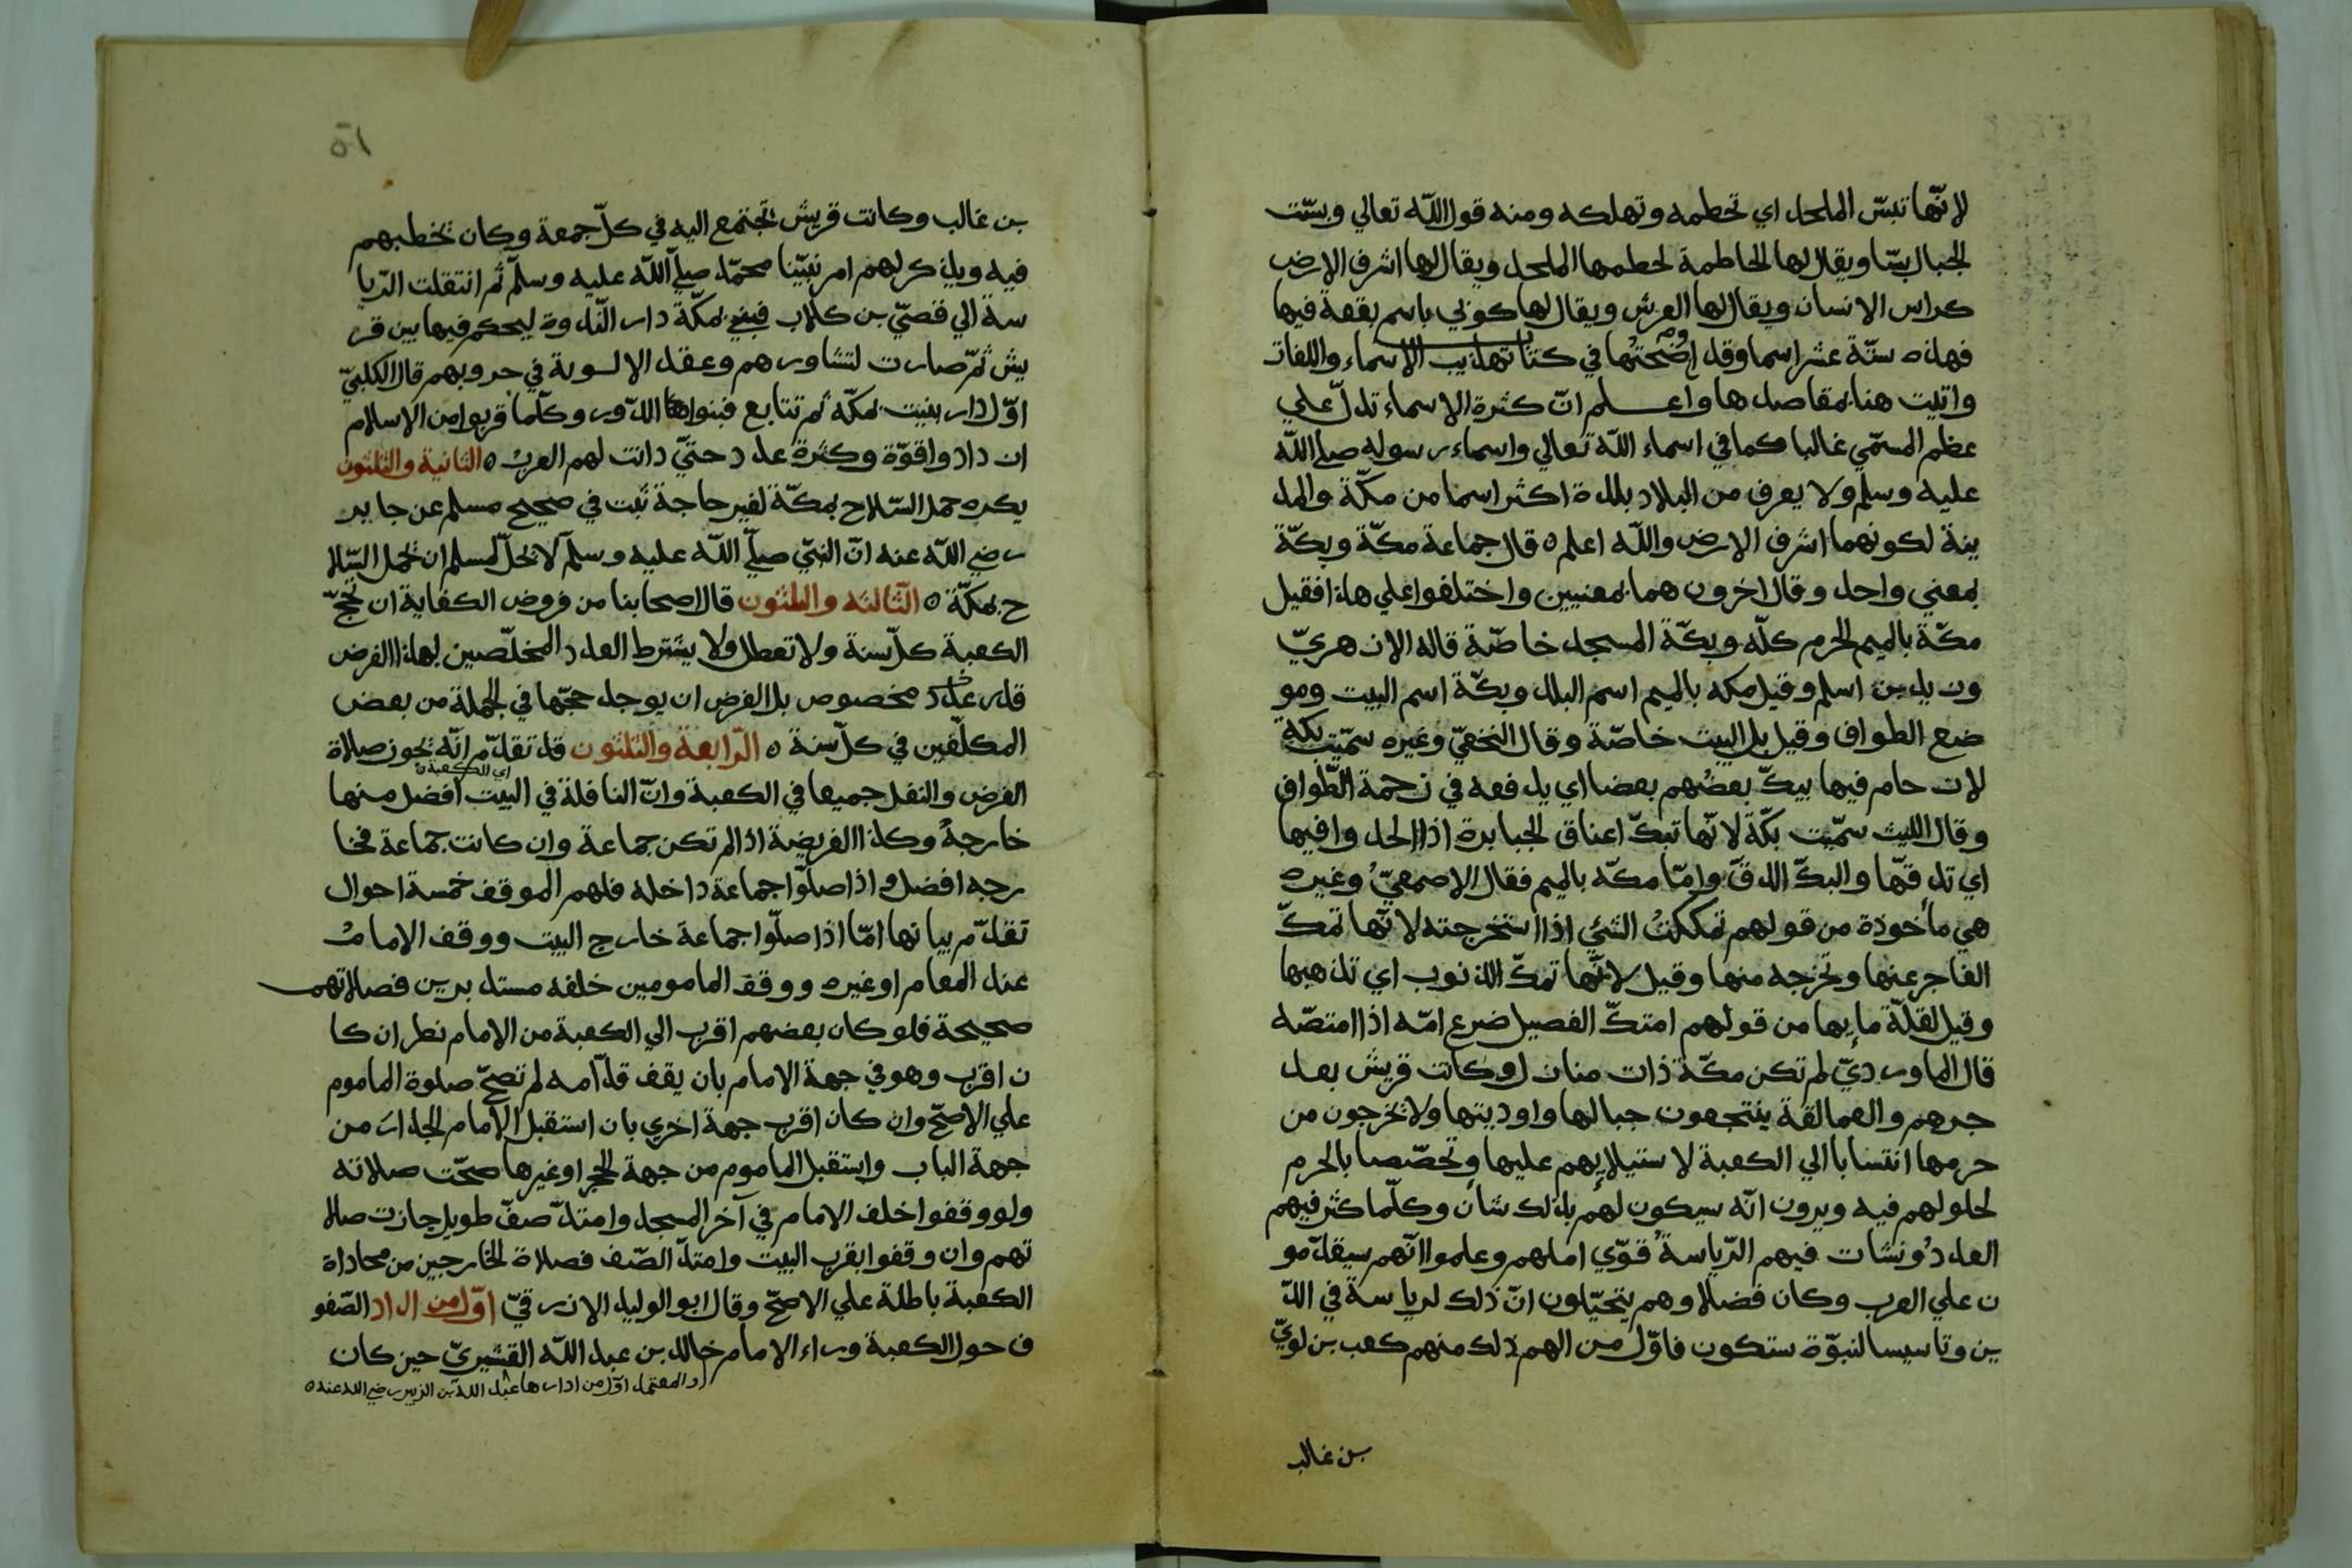 لانّها تبسّ الملحد اي تحطمه وتهلكه ومنه قول الله تعالي وبسّت
الجبال بسّا ويقال لها الحاطمة لحطمها الملحد ويقال لها اشرف الارض
كراس الانسان ويقال لها العرش ويقال لها كوثي باسم بقعة فيها
فهذه ستّة عشر اسما وقد اوضحتها في كتاب تهذيب الاسماء واللغات
واتيت هنا بمقاصدها واعلم انّ كثرة الاسماء تدلّ علي
عظم المسمّي غالبا كما في اسماء الله تعالي واسماء رسوله صلي الله
عليه وسلم ولا يعرف من البلاد بلدة اكثر اسما من مكّة والمد
ينة لكونهما اشرف الارض والله اعلم ٥ قال جماعة مكّة وبكّة
بمعني واحد وقال اخرون هما بمعنيين واختلفوا علي هذا فقيل
مكّة بالميم الحرم كلّه وبكّة المسجد خاصّة قاله الزهريّ
وزيد بن اسلم وقيل مكه بالميم اسم البلد وبكّة اسم البيت ومو
ضع الطواف وقيل بل البيت خاصّة وقال النخعيّ وغيره سمّيت بكة
لازدحام فيها يبكّ بعضهم بعضا اي يدفعه في زحمة الطّواف
وقال الليث سمّيت بكّة لانّها تبكّ اعناق الجبابرة اذا الحدوا فيها
اي تدقّها والبكّ الدقّ وامّا مكّه بالميم فقال الاصمعيّ وغيره
هي مأخوذة من قولهم تمككت الشئ اذا استخرجته لانّها تمكّ
الفاجر عنها وتخرجه منها وقيل لانّها تمكّ الذنوب اي تذهبها
وقيل لقلّة مايها من قولهم امتكّ الفصيل ضرع امّه اذا امتصّه
قال الماورديّ لم تكن مكّة ذات منازل وكانت قريش بعد
جرهم والعمالقة ينتجعون جبالها واوديتها ولا يخرجون من
حرمها انتسابا الي الكعبة لاستيلايهم عليها وتخصّصا بالحرم
لحلولهم فيه ويرون انّه سيكون لهم بذلك شان وكلّما كثر فيهم
العدد ونشات فيهم الرّياسة قوّي املهم وعلموا انّهم سيقدّمو
ن علي العرب وكان فضلاوهم يتخيّلون انّ ذلك لرياسة في الدّ
ين وتاسيسا لنبوّة ستكون فاوّل من الهم ذلك منهم كعب بن لويّ
بن غالب
٥١
بن غالب وكانت قريش تجتمع اليه في كلّ جمعة وكان يخطبهم
فيه ويذكر لهم امر نبيّنا محمّد صلّي الله عليه وسلّم ثم انتقلت الرّيا
سة الي قصيّ بن كلاب فبني بمكّة دار النّدوة ليحكم فيها بين قر
يش ثمّ صارت لتشاورهم وعقد الالوية في حروبهم قال الكلبيّ
اوّل دار بنيت بمكّة ثم تتابع فبنوا الدّور وكلّما قربوا من الاسلام
ازدادوا قوّة وكثرة عدد حتيّ دانت لهم العرب ٥ الثانية والثلثون
يكره حمل السّلاح بمكّة لغير حاجة ثبت في صحيح مسلم عن جابر
رضي الله عنه انّ النبيّ صلّي الله عليه وسلّم لا يحلّ لمسلم ان يحمل السّلا
ح بمكّة ٥ الثّالثه والثلثون قال اصحابنا من فروض الكفاية ان تحجّ
الكعبة كلّ سنة ولا تعطل ولا يشترط العدد المخلّصين لهذا الفرض
قدر عدد مخصوص بل الفرض ان يوجد حجّها في الجملة من بعض
المكلّفين في كلّ سنة ٥ الرّابعة والثلثون قد تقدّم انّه يجوز صلاة
اي الكعبة
الفرض والنفل جميعا في الكعبة وانّ النافلة في البيت افضل منها
خارجة وكذا الفريضة اذا لم تكن جماعة وان كانت جماعة فخا
رجه افضل واذا صلّوا جماعة داخله فلهم الموقف خمسة احوال
تقدّم بيانها امّا اذا صلّوا جماعة خارج البيت ووقف الامام
عند المقام او غيره ووقف المامومين خلفه مستديرين فصلاتهم
صحيحة فلو كان بعضهم اقرب الي الكعبة من الامام نظر ان كا
ن اقرب وهو في جهة الامام بان يقف قدّامه لم تصحّ صلوة الماموم
علي الاصحّ وان كان اقرب جهة اخري بان استقبل الامام الجدار من
جهة الباب واستقبل الماموم من جهة الحجر او غيرها صحّت صلاته
ولو وقفوا خلف الامام في آخر المسجد وامتدّ صفّ طويل جازت صلا
تهم وان وقفوا بقرب البيت وامتدّ الصّف فصلاة الخارجين من محاذاة
الكعبة باطلة علي الاصحّ وقال ابو الوليد الازرقيّ اوّل من اداد الصّفو
ف حول الكعبة وراء الامام خالد بن عبد الله القشيريّ حين كان
والمعتمد اوّل من ادارها عبد الله بن الزبير رضي الله عنه ٥